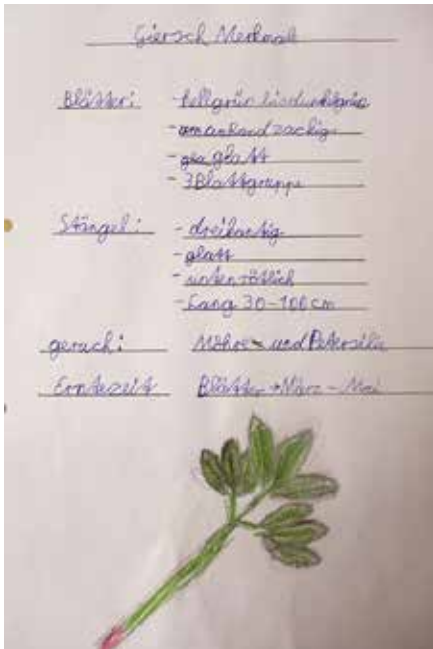 Giersch Merkmal
Blätter: - hellgrün bis dunkelgrün
- am Rand zackig
- glatt
- 3Blattgruppe
Stängel: - dreikantig
- glatt
- unten rötlich
- Lang 30-100 cm
geruch: Möhre - und Petersilie
Erntezeit Blätter → März - Mai